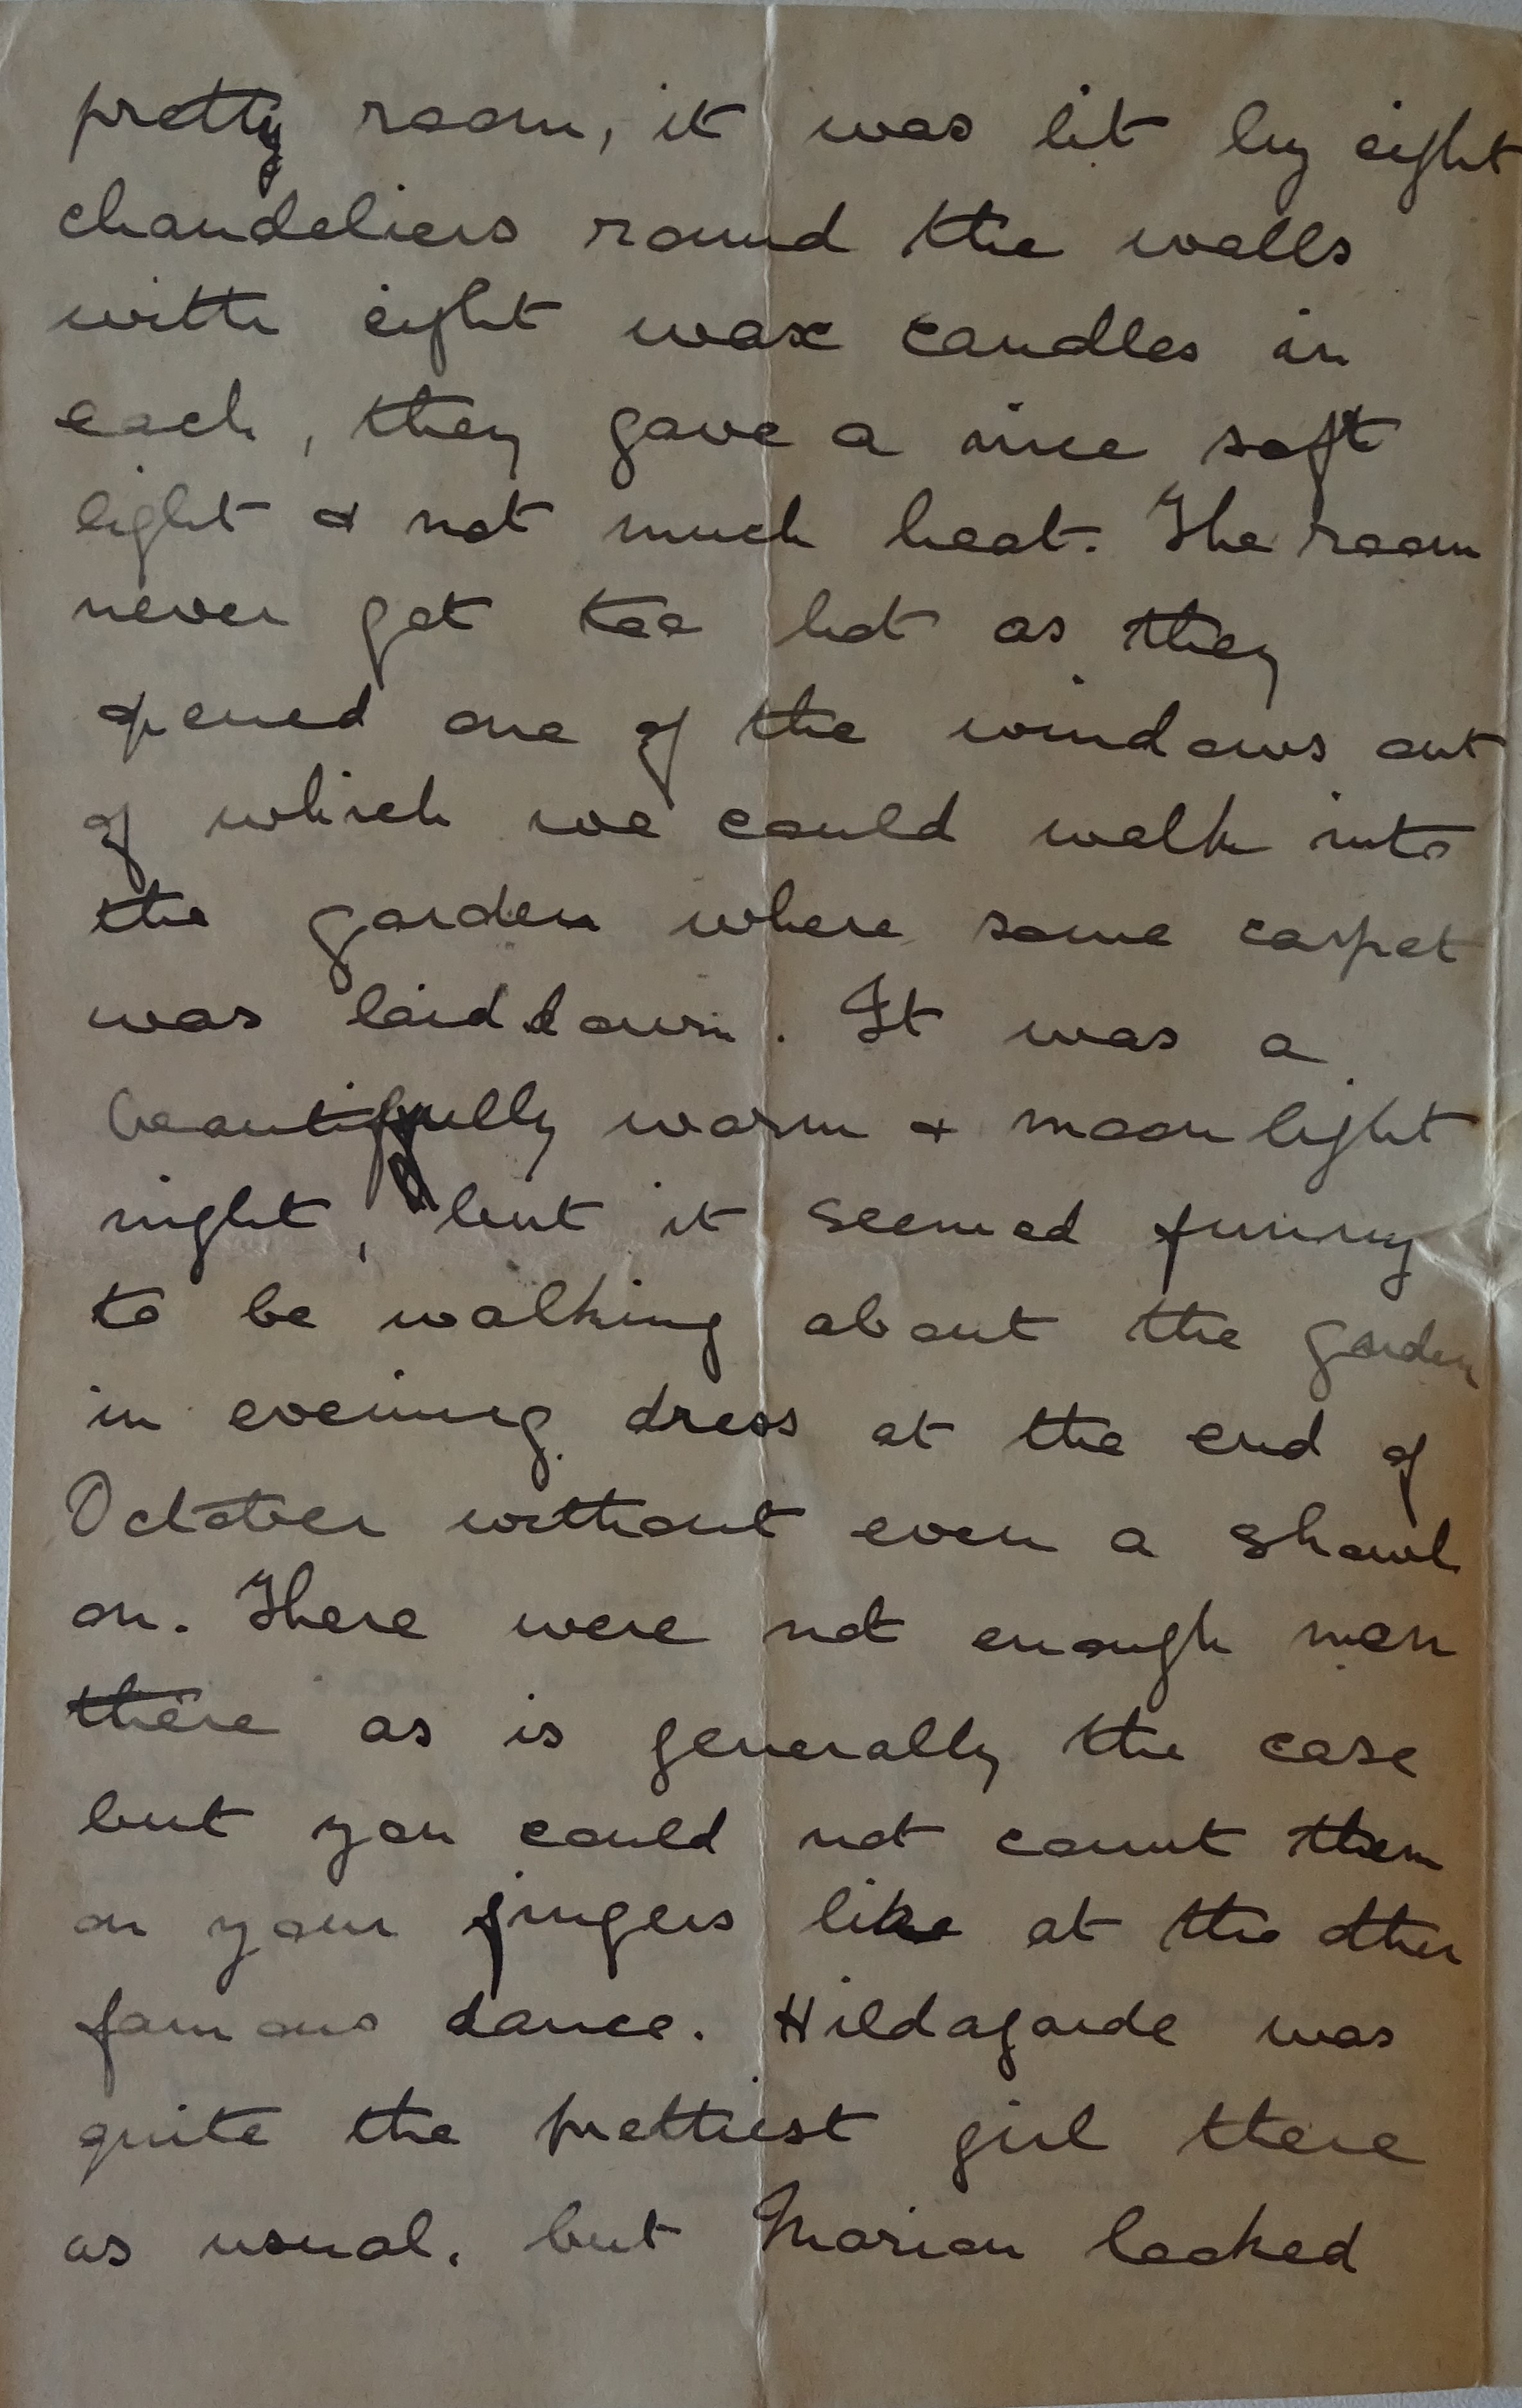 pretty room, it was lit by eight
chandeliers round the walls
with eight wax candles in
each, they gave a nice soft
light & not much heat. The room
never got too hot as they
opened one of the windows out
of which we could walk into
the garden where some carpet
was laid down. It was a
beautifully warm & moonlight
night, but it seemed funny
to be walking about the garden
in evening dress at the end of
October without even a shawl
on. There were not enough men
there as is generally the case
but you could not count them
on your fingers like at the other
famous dance. Hildagarde was
quite the prettiest girl there
as usual. but Marion looked